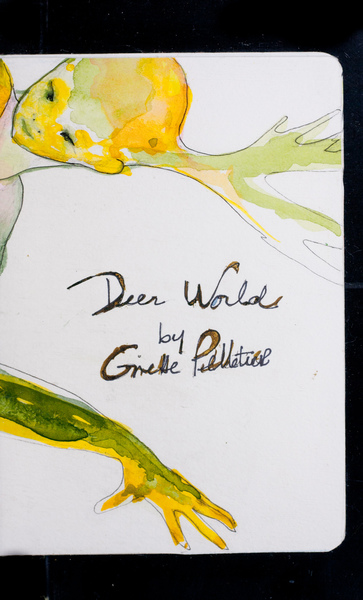 Deer World
by
Ginette Pelletier